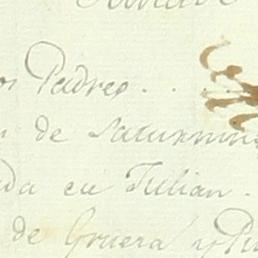 os Padres . .
de Saturnino
da en Julian .
de Gruera y Pu